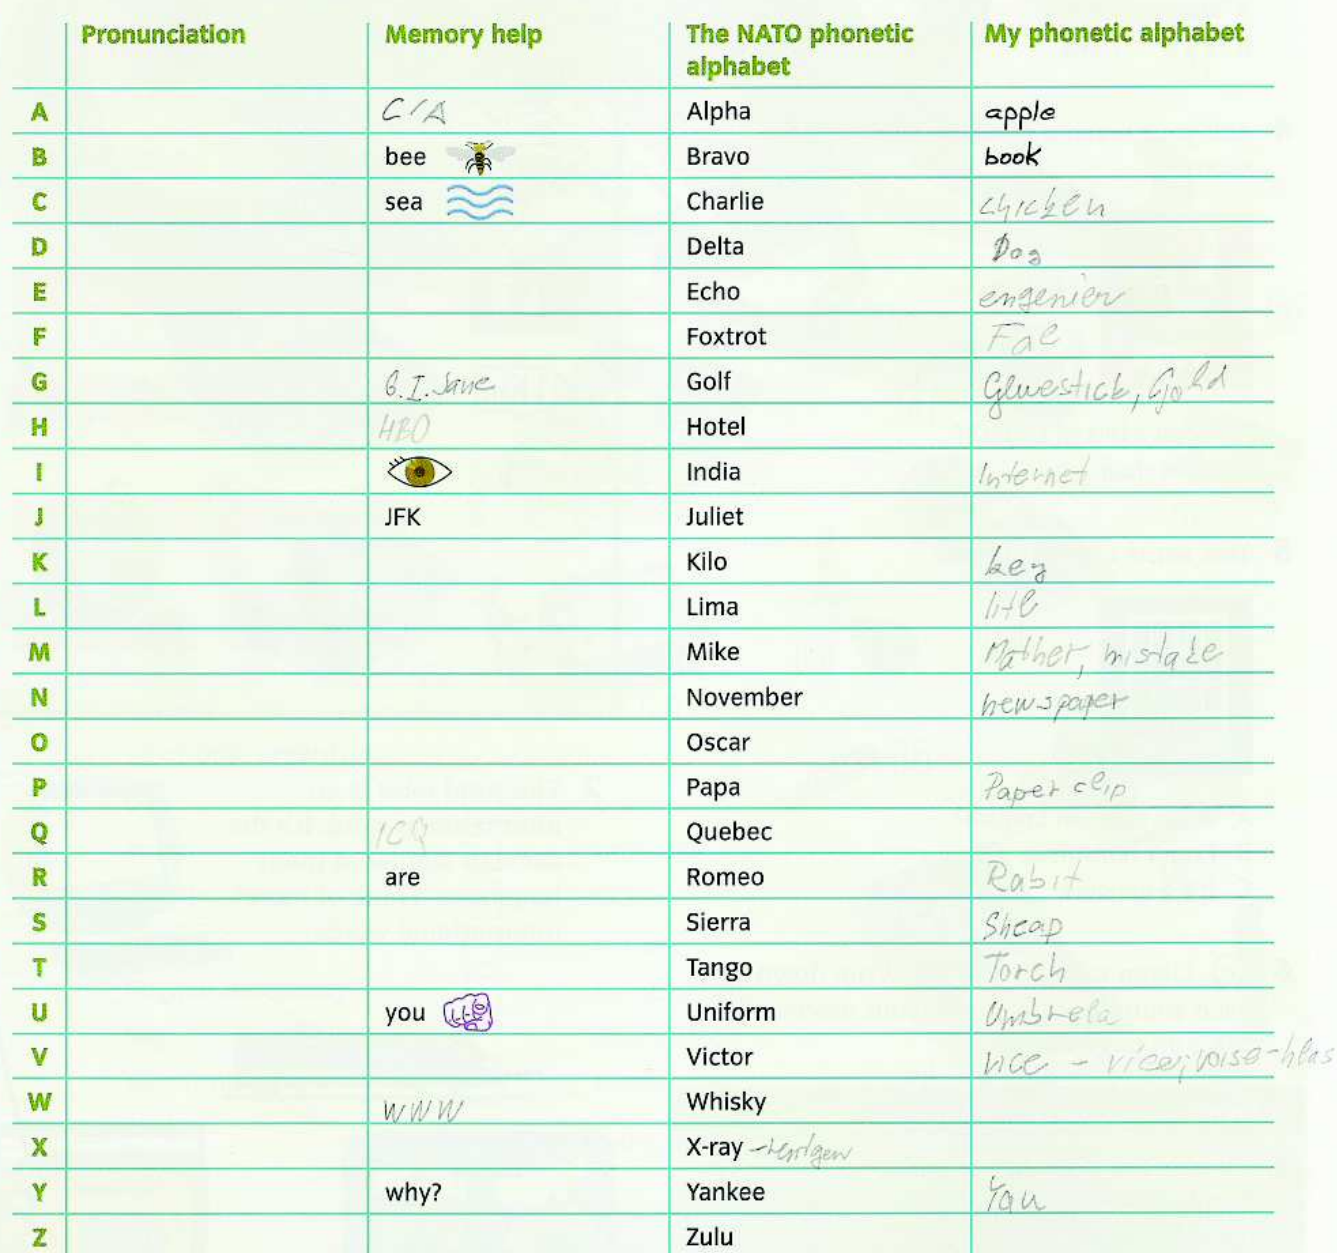 Pronunciation Memory help The NATO phonetic alphabet My phonetic alphabet
A CIA Alpha apple
B bee Bravo book
C sea Charlie chicken
D Delta Dog
E Echo engenier
F Foxtrot
G G.I. Jane Golf Gluestick, Gold
H HBO Hotel
I India Internet
J JFK Juliet
K Kilo key
L Lima litl
M Mike Mather, mistake
N November newspaper
O Oscar
P Papa Paper clip
Q ICQ Quebec
R are Romeo Rabit
S Sierra Sheap
T Tango Torch
U you Uniform Umbrela
V Victor vice - více; voise-hlas
W WWW Whisky
X X-ray -rentgen
Y why? Yankee You
Z Zulu